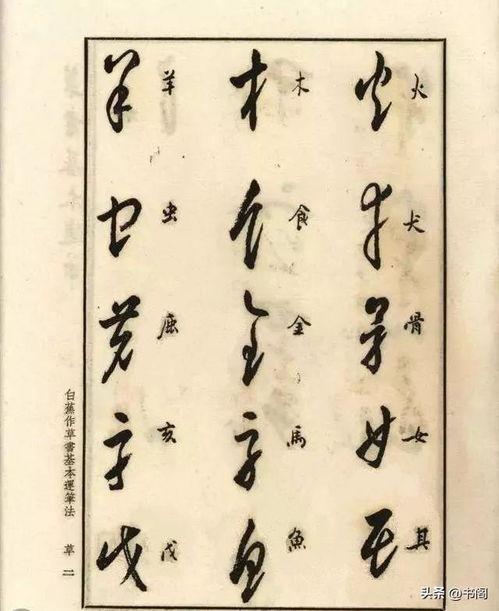 火 犬 骨 女 其
木 食 金 馬 魚
羊 虫 鹿 亥 戊
白蕉作草書基本運筆法 草二
头条 @书阁